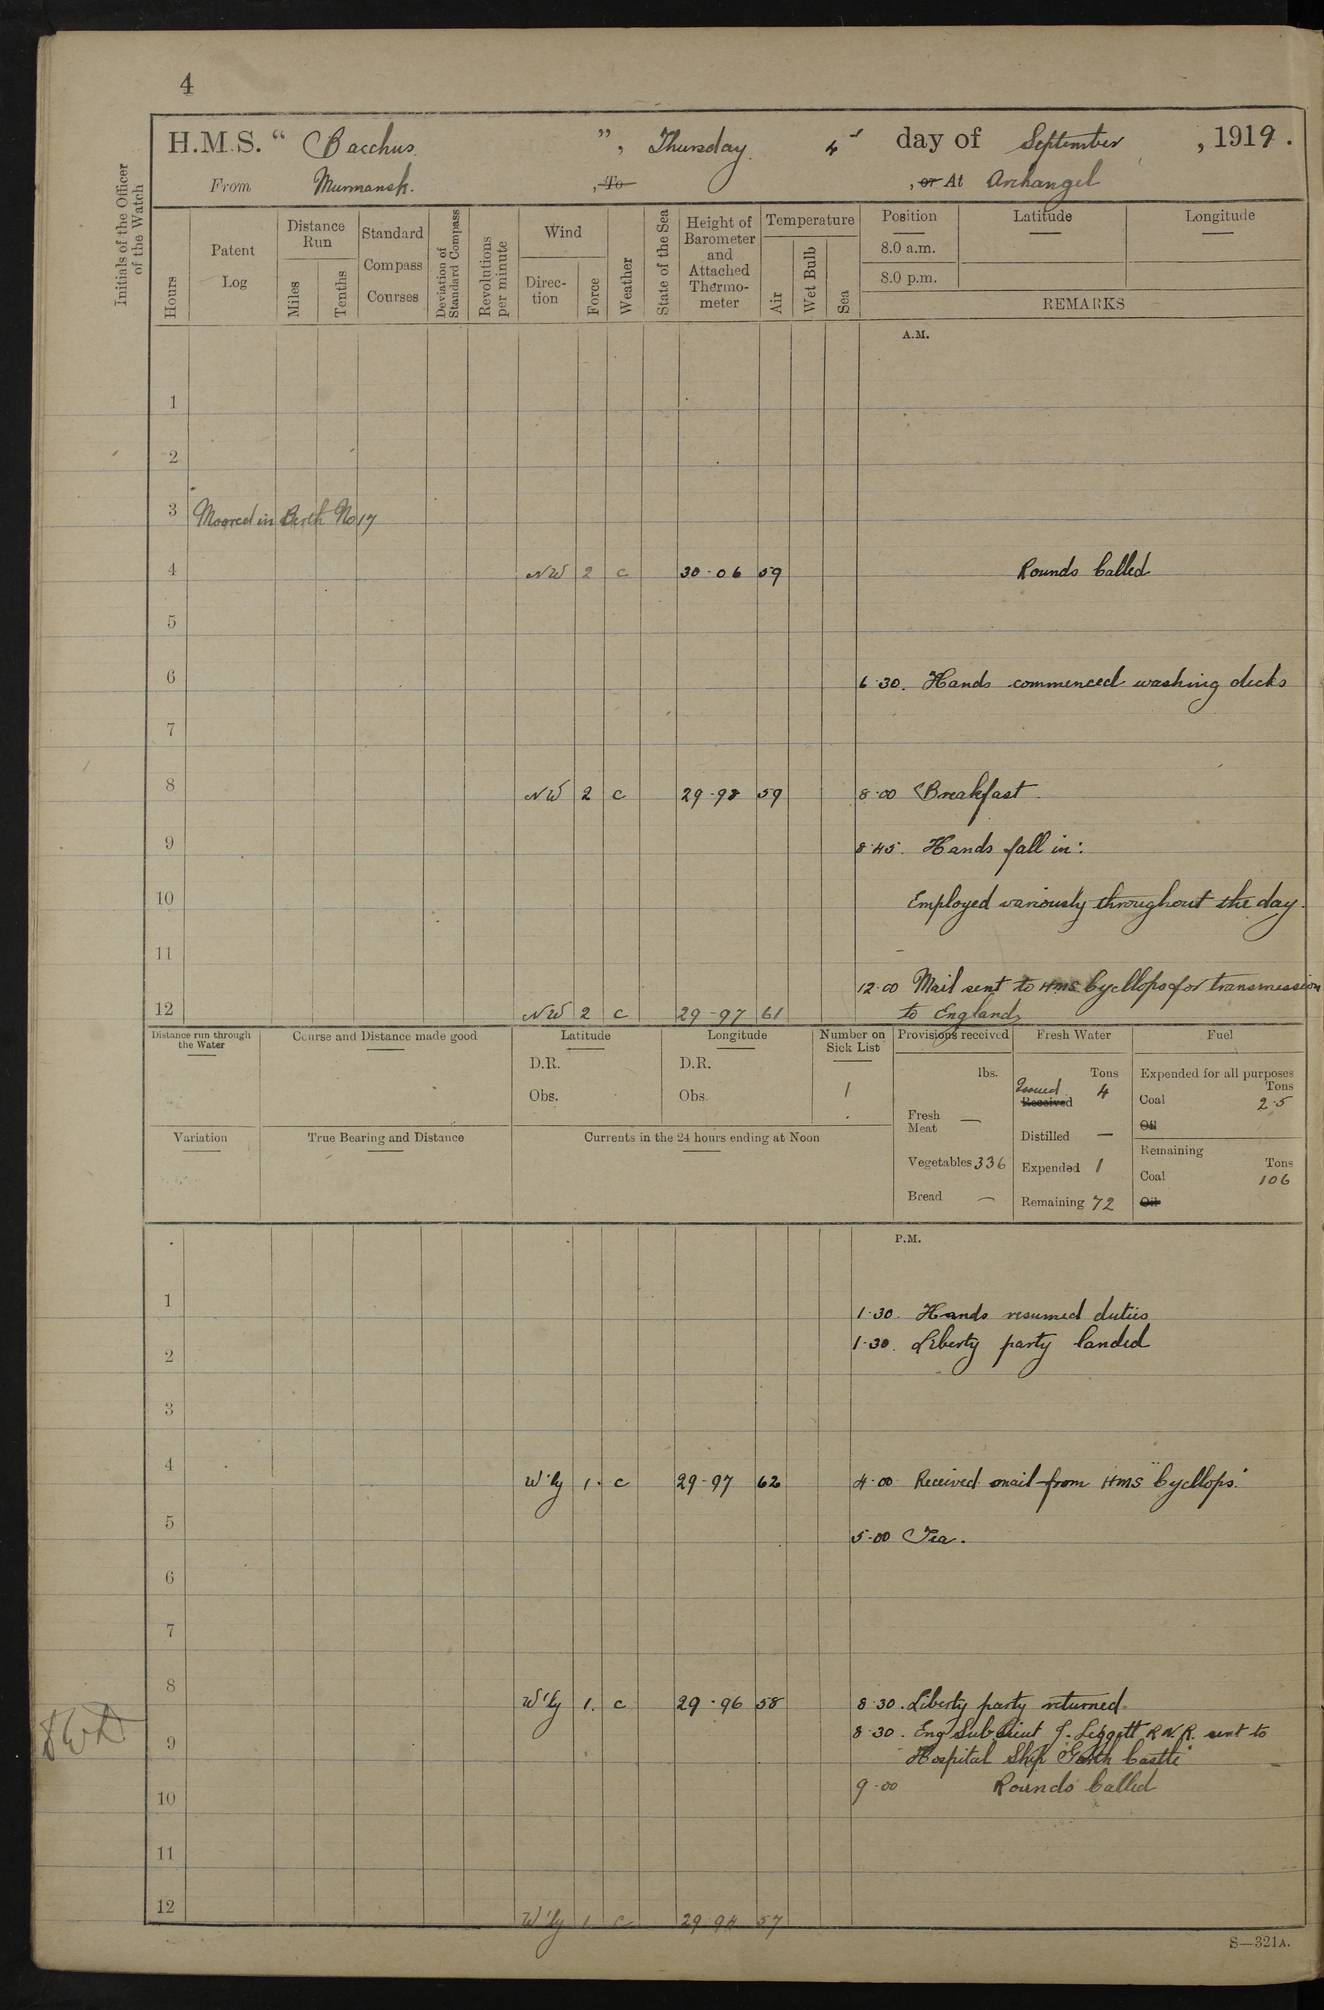 4
H.M.S. “ Bacchus. ”, Thursday. 4th day of September, 1919.
From Murmansk. , To , or At Archangel
Initials of the Officer of the Watch
Hours
Patent Log
Distance Run
Miles
Tenths
Standard Compass Courses
Deviation of Standard Compass
Revolutions per minute
Wind
Direction
Force
Weather
State of the Sea
Height of Barometer and Attached Thermometer
Temperature
Air
Wet Bulb
Sea
Position Latitude Longitude
8.0 a.m.
8.0 p.m.
REMARKS
A.M.
1
2
3 Moored in Berth No 17
4 NW 2 c 30·06 59 Rounds Called
5
6 6·30. Hands commenced washing decks
7
8 NW 2 c 29·98 59 8·00 Breakfast.
9 8·45. Hands fall in:
10 Employed variously throughout the day.
11
12·00 Mail sent to HMS Cycllops for transmission
12 NW 2 c 29-97 61 to England
Distance run through the Water
Course and Distance made good
Latitude
D.R.
Obs.
Longitude
D.R.
Obs.
Number on Sick List
1
Provisions received
lbs.
Fresh Meat —
Vegetables 336
Bread —
Fresh Water
Tons
Issued Received 4
Distilled —
Expended 1
Remaining 72
Fuel
Expended for all purposes
Tons
Coal 2·5
Oil
Remaining
Tons
Coal 106
Oil
Variation
True Bearing and Distance
Currents in the 24 hours ending at Noon
P.M.
1 1·30. Hands resumed duties
2 1·30. Liberty party landed
3
4 W'ly 1. c 29-97 62 4·00 Received mail from HMS "Cycllops."
5 5·00 Tea.
6
7
8 W'ly 1. c 29·96 58 8·30. Liberty party returned.
9 8·30. Eng Sub Lieut J. Leggott R.N.R. sent to
Hospital Ship "Garth Castle"
10 9·00 Rounds Called
11
12 W'ly 1 c 29·94 57
S—321A.